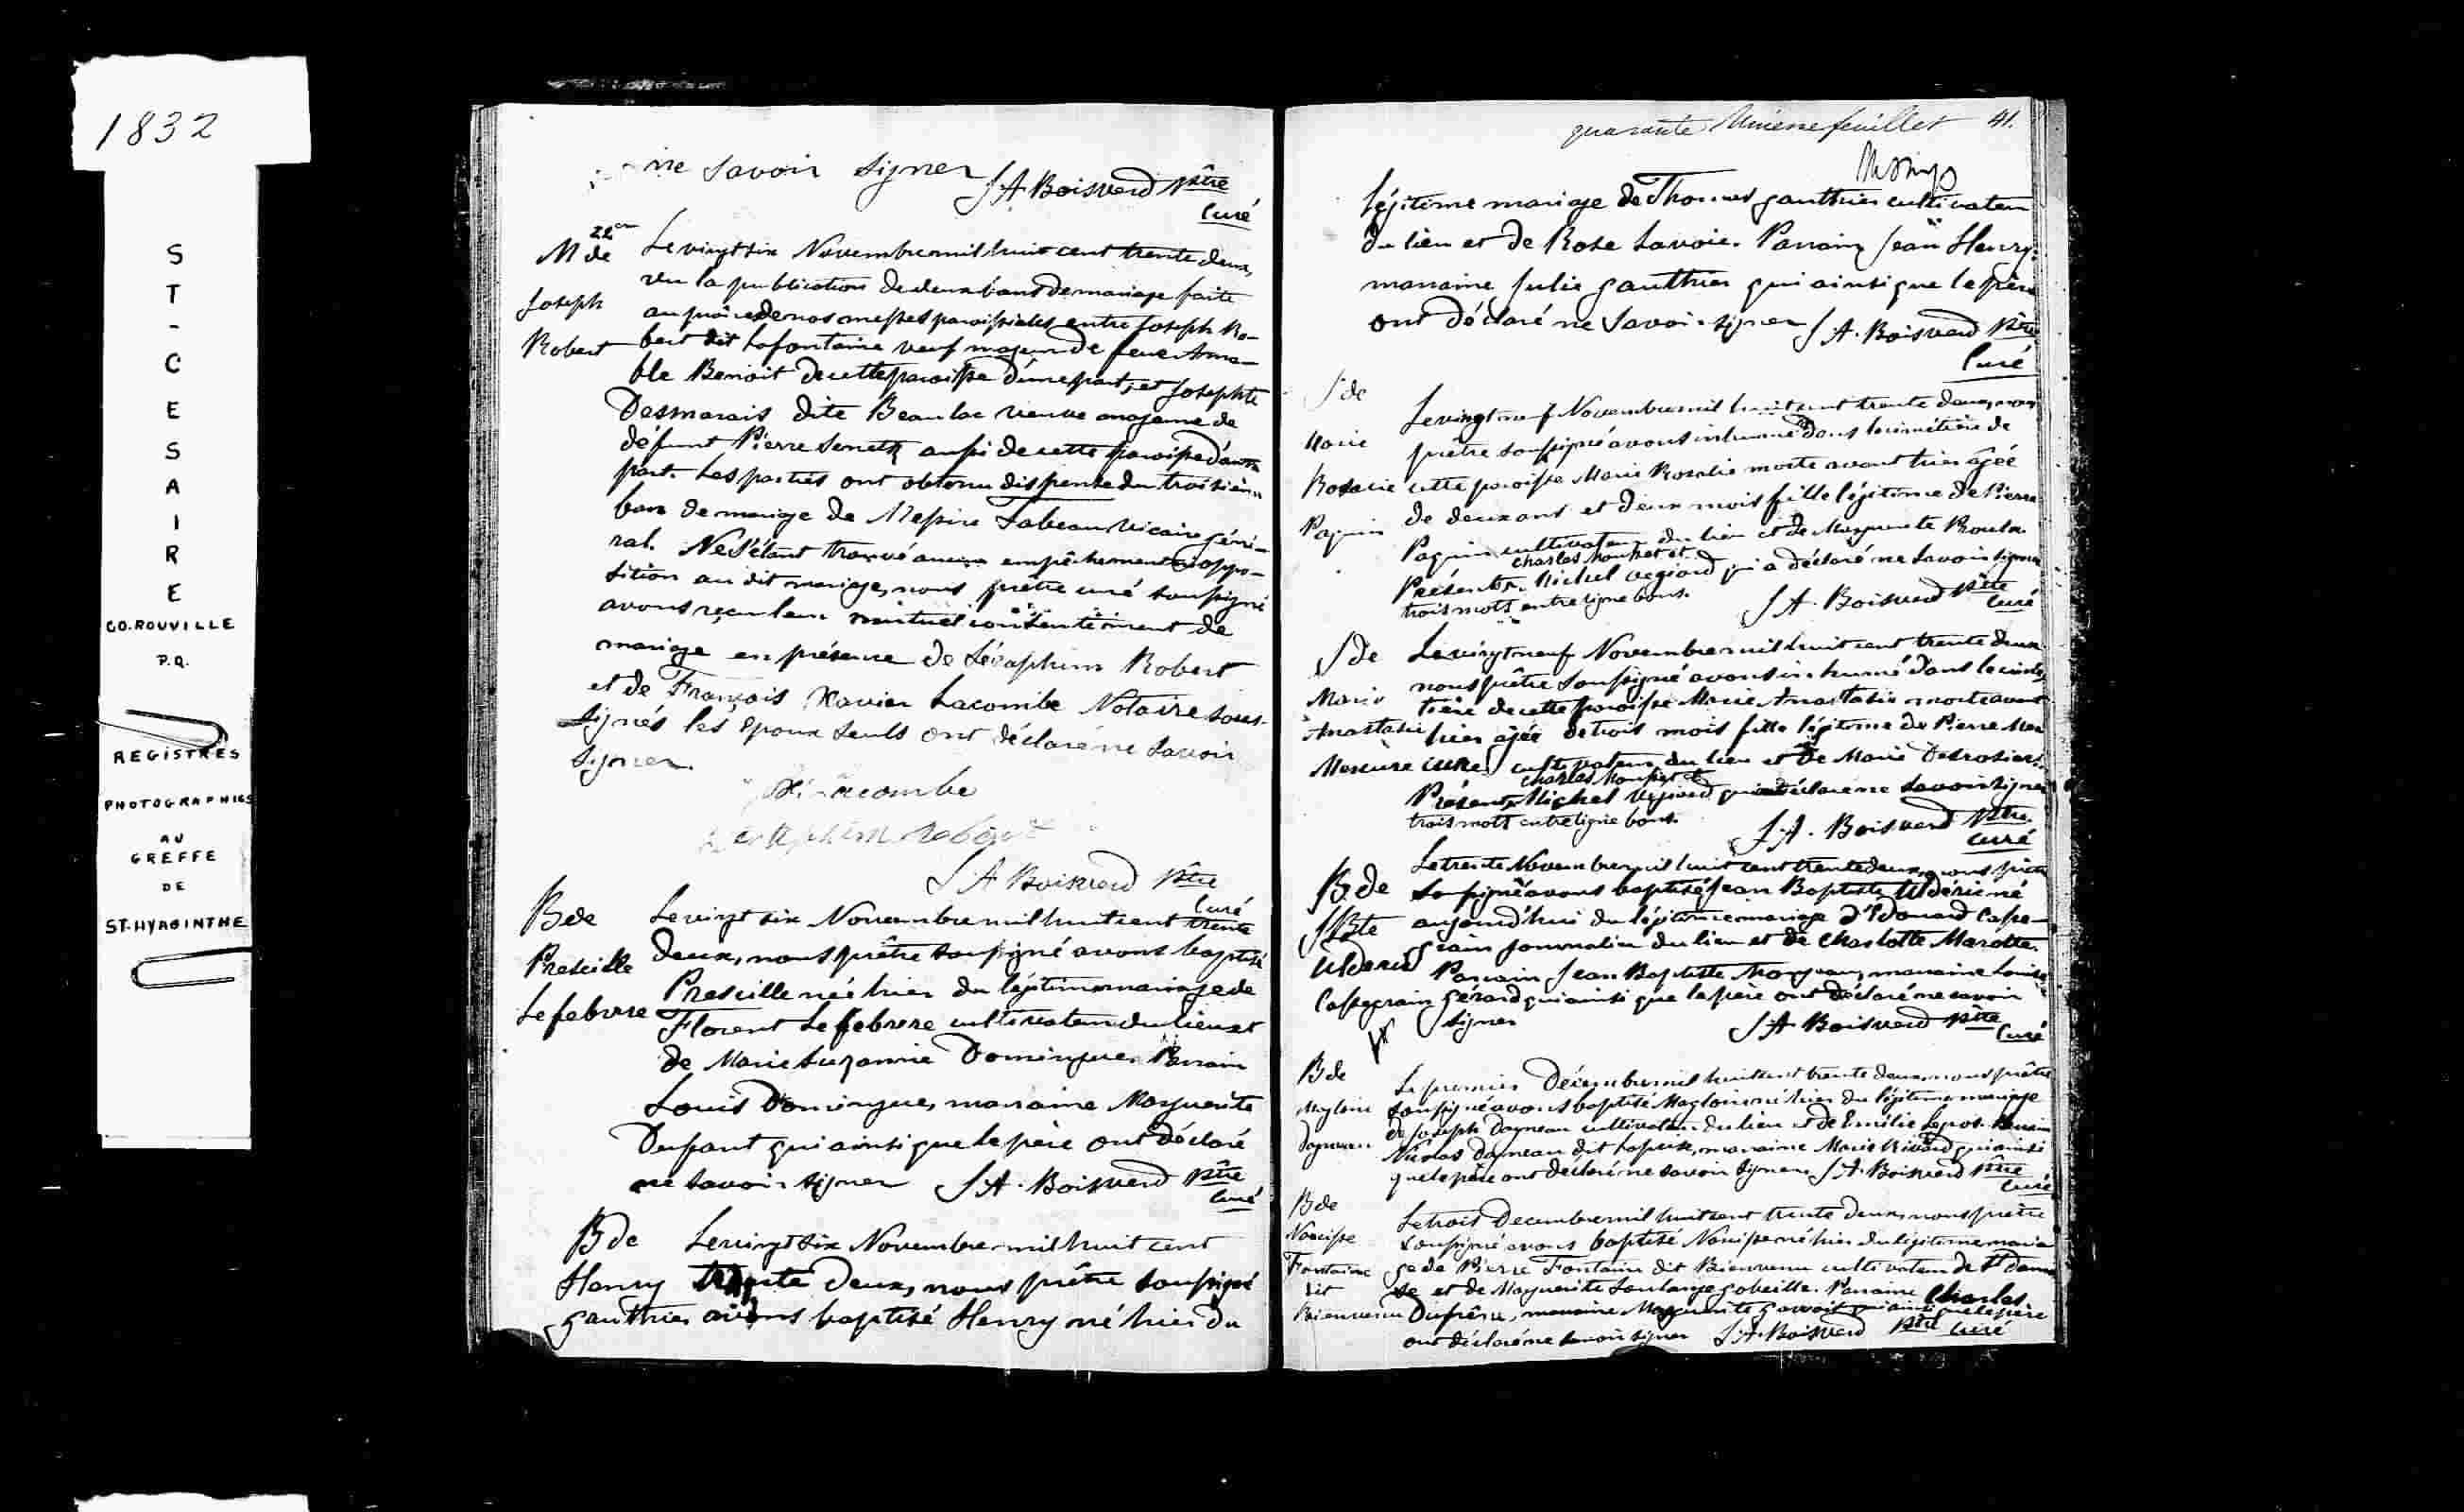 1832
S
T
-
C
E
S
A
I
R
E
CO. ROUVILLE
P.Q.
REGISTRES
PHOTOGRAPHIES
AU
GREFFE
DE
ST-HYACINTHE
ne savoir signer
S A Boisverd Ptre
Curé
22em
M de
Joseph
Robert
Le vingt six Novembre mil huit cent trente deux,
vu la publication de deux bans de mariage faite
au prône de nos messes paroissiales entre Joseph Ro-
bert dit Lafontaine veuf majeur de feue Ama-
ble Benoit de cette paroisse d'une part, et Josephte
Desmarais dite Beaulac veuve majeure de
défunt Pierre aussi de cette paroisse d'autre
part. Les parties ont obtenu dispense du troisième
ban de mariage de Messire Tabeau Vicaire géné-
ral. Ne s'étant trouvé aucun empêchement ou oppo-
sition au dit mariage, nous prêtre curé soussigné
avons reçu leur mutuel consentement de
mariage en présence de Séraphim Robert
et de François Xavier Lacombe Notaire sous-
signés les epoux seuls ont déclaré ne savoir
signer.
Lacombe
Seraphim Robert
S A Boisverd Ptre
Curé
B de
Prescille
Lefebvre
Le vingt six Novembre mil huit cent trente
deux, nous prêtre soussigné avons baptisé
Prescille née hier du légitime mariage de
Florent Lefebvre cultivateur du lieu et
de Marie Suzanne Domingue. Parrain
Louis Domingue, marraine Marguerite
Dupant qui ainsi que le père ont déclaré
ne savoir signer S A. Boisverd Ptre
Curé
B de
Henry
gauthier
Le vingt six Novembre mil huit cent
trente deux, nous prêtre soussigné
avons baptisé Henry né hier du
quarante Unieme feuillet 41.
légitime mariage de Thomas gauthier cultivateur
du lieu et de Rose Savoie. Parrain Jean Henry,
marraine Julie gauthier qui ainsi que le père
ont déclaré ne savoir signer S A. Boisverd Ptre
Curé
S de
Marie
Rosalie
Paquin
Le vingt neuf Novembre mil huit cent trente deux, nous
prêtre soussigné avons inhumé dans le cimétière de
cette paroisse Marie Rosalie morte avant hier âgée
de deux ans et deux mois fille légitime de Pierre
Paquin cultivateur du lieu et de Marguerite Proulx
charles et
Présents Michel qui a déclaré ne savoir signer
trois mots entre ligne bons.
S A. Boisverd Ptre
Curé
S de
Marie
Anastasie
Mesure
Le vingt neuf Novembre mil huit cent trente deux
nous prêtre soussigné avons inhumé dans le cimé-
tière de cette paroisse Marie Anastasie morte avant
hier âgée de trois mois fille légitime de Pierre
cultivateur du lieu et de Marie Desrosiers.
charles et
Présents Michel qui a déclaré ne savoir signer
trois mots entre ligne bons.
S. A. Boisverd Ptre
Curé
B de
J Bte
Ulderic
Cassegrain
Le trente Novembre mil huit cent trente deux, nous prêtre
soussigné avons baptisé Jean Baptiste Ulderic né
aujourd'hui du légitime mariage d'Edouard Casse-
grain journalier du lieu et de Charlotte Marotte.
Parrain Jean Baptiste marraine Louise
Gérard qui ainsi que le père ont déclaré ne savoir
signer
S A. Boisverd Ptre
Curé
B de
Magloire
Dagneau
Le premier Décembre mil huit cent trente deux, nous prêtre
soussigné avons baptisé Magloire né hier du légitime mariage
de Joseph Dagneau cultivateur du lieu et de Emélie Parrain
Nicolas dagneau dit marraine Marie qui ainsi
que le père ont déclaré ne savoir signer S A. Boisverd Ptre
Curé
B de
Narcisse
Fontaine
dit
Bienvenu
Le trois Decembre mil huit cent trente deux, nous prêtre
soussigné avons baptisé Narcisse né hier du légitime maria
ge de Pierre Fontaine dit Bienvenu cultivateur de St Dama
se et de Marguerite Soulange gobeille. Parrain Charles
Dufrêne, marraine Marguerite qui ainsi que le père
ont déclaré ne savoir signer S. A. Boisverd Ptre Curé